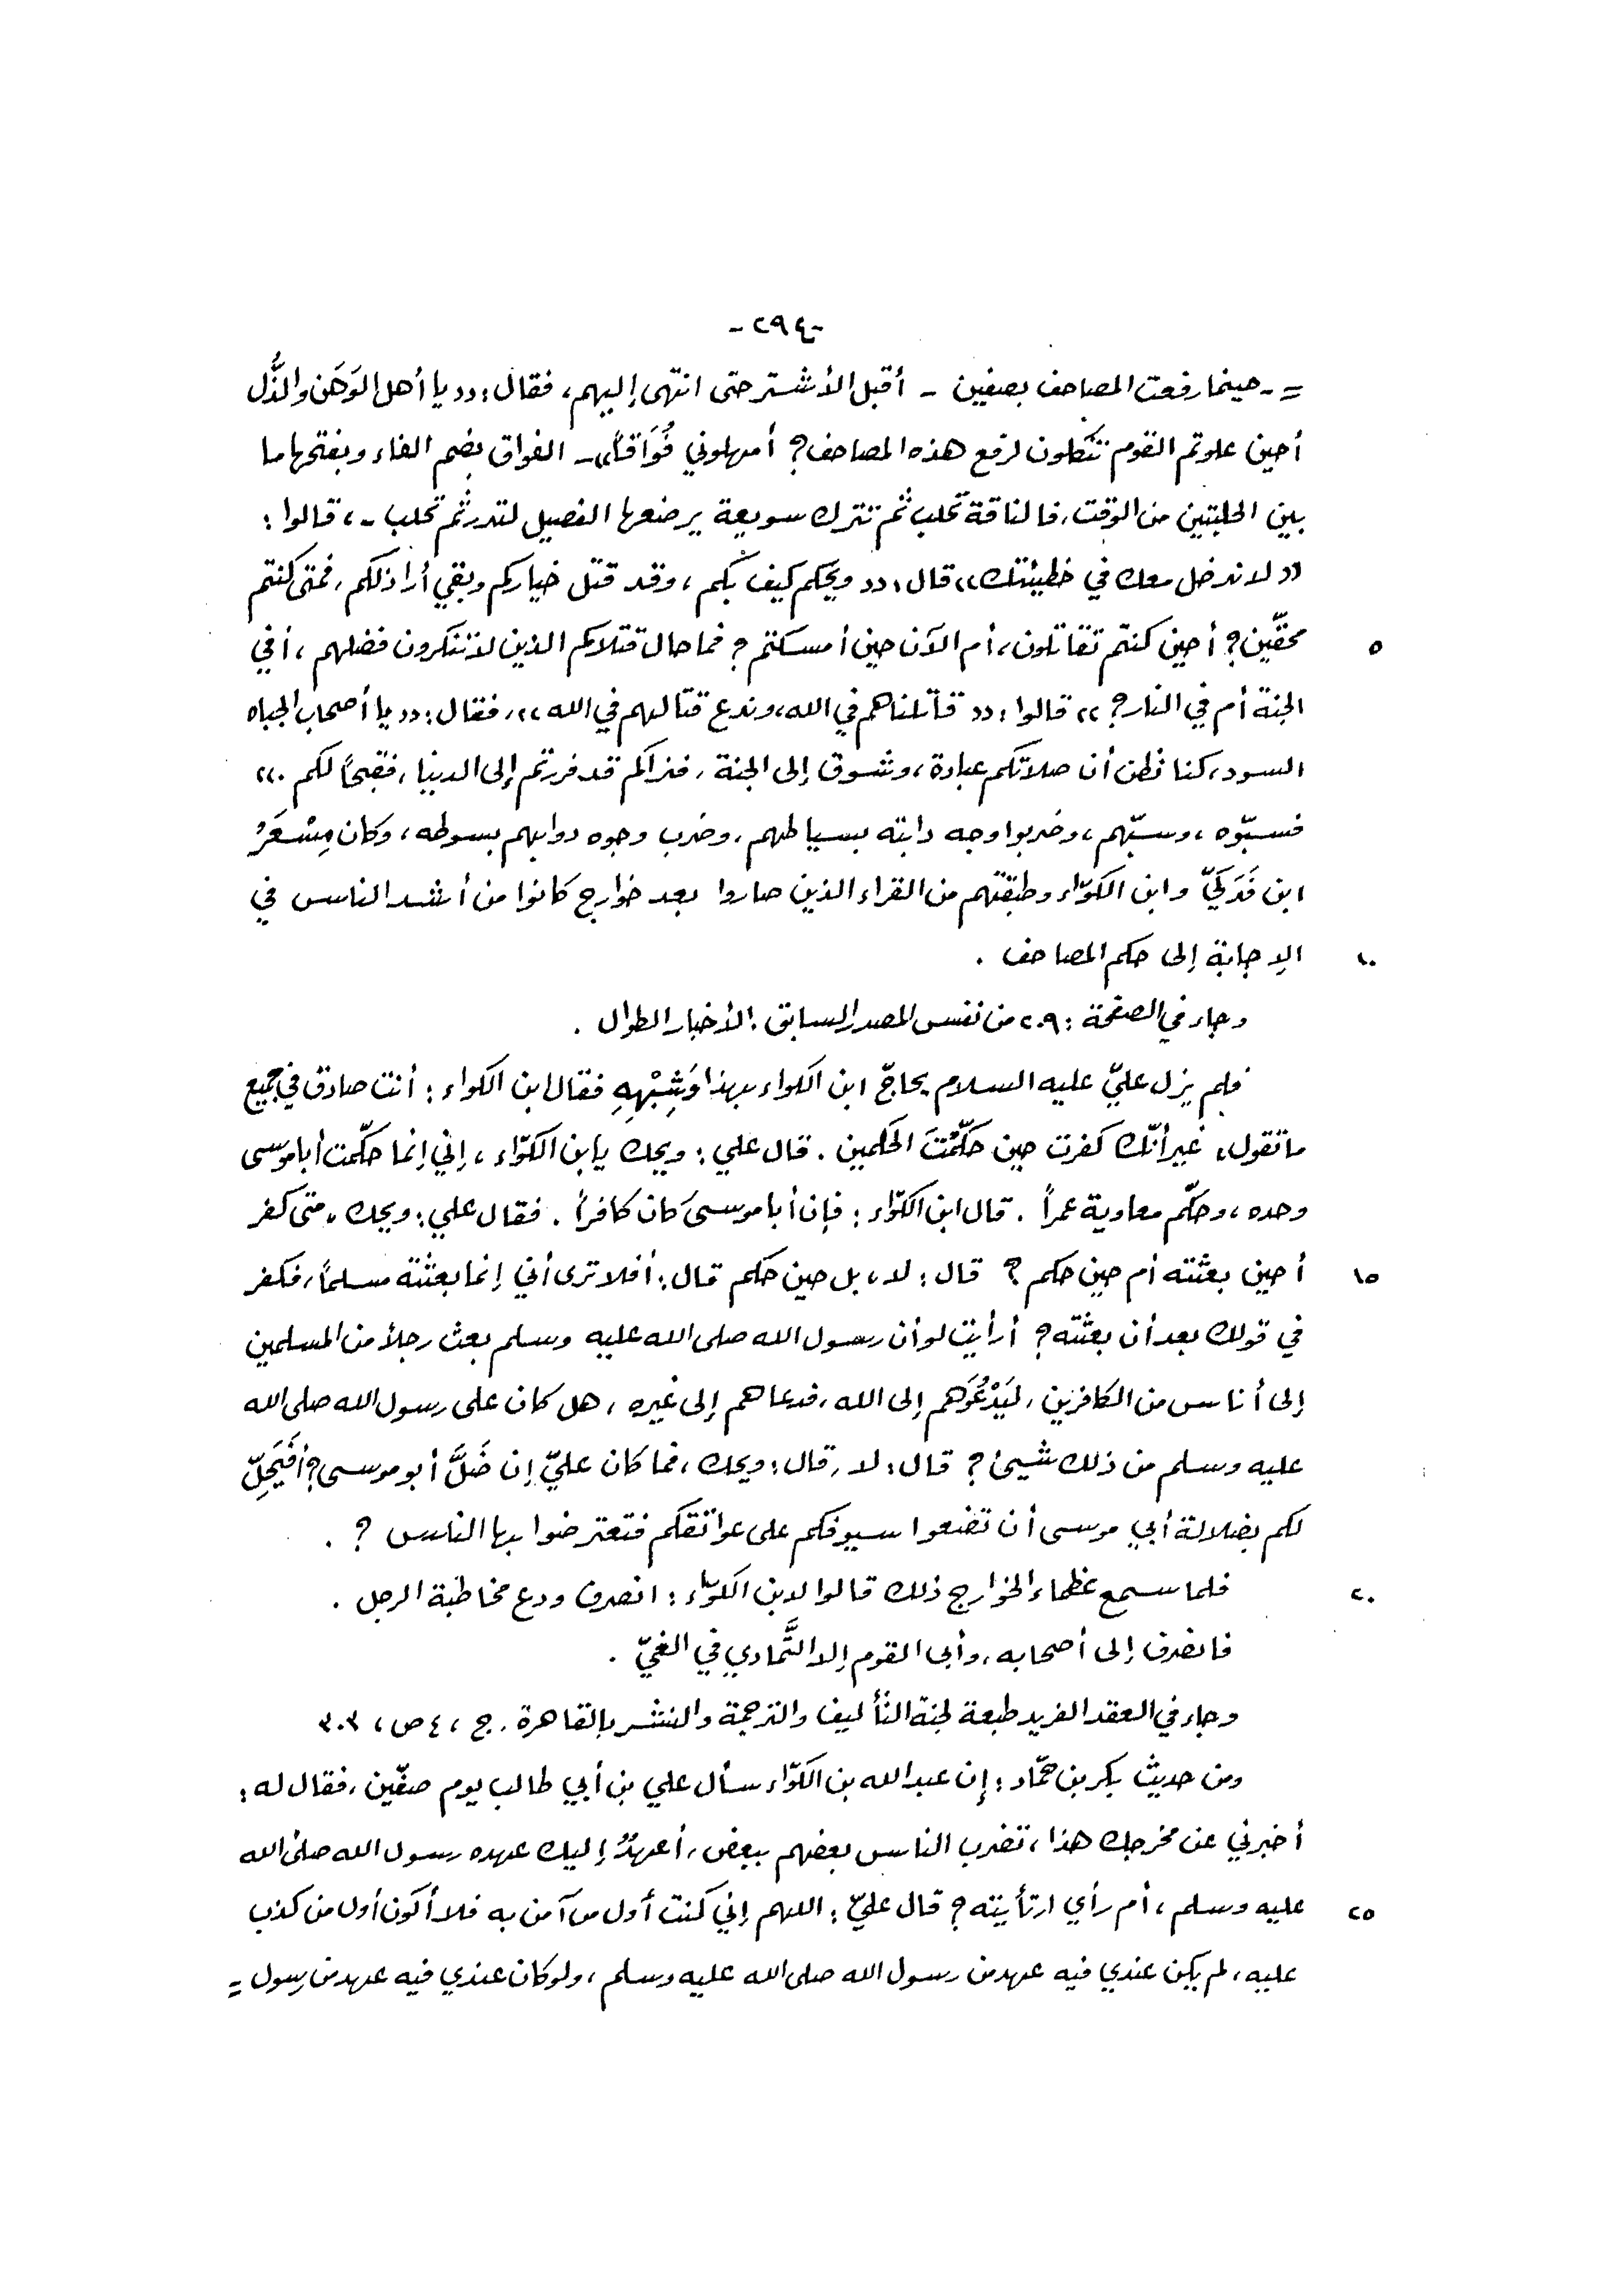 -٢٩٤-
= - حينما رفعت المصاحف بصفين - أقبل الأشتر حتى انتهى إليهم، فقال: «يا أهل الوَهَن والذُّل
أحين علوتم القوم تنكلون لرفع هذه المصاحف؟ أمهلوني فُوَاقاً» - الفواق بضم الفاء وبفتحها ما
بين الحلبتين من الوقت، فالناقة تحلب ثم تترك سويعة يرضعها الفصيل لتدر ثم تحلب -، قالوا:
«لا ندخل معك في خطيئتك» قال: «ويحكم كيف بكم، وقد قتل خياركم وبقي أراذلكم، فمتى كنتم
٥ محقّين؟ أحين كنتم تقاتلون، أم الآن حين أمسكتم؟ فما حال قتلاكم الذين لا تنكرون فضلهم، أفي
الجنة أم في النار؟» قالوا: «قاتلناهم في الله، وندع قتالهم في الله»، فقال: «يا أصحاب الجباه
السود، كنا نظن أن صلاتكم عبادة، وشوق إلى الجنة، فنراكم قد فررتم إلى الدنيا، فقبحاً لكم.»
فسبّوه، وسبّهم، وضربوا وجه دابته بسياطهم، وضرب وجوه دوابهم بسوطه، وكان مِسْعَرُ
ابن فَدَكيّ وابن الكوّاء وطبقتهم من القراء الذين صاروا بعد خوارج كانوا من أشد الناس في
١٠ الإجابة إلى حكم المصاحف .
وجاء في الصفحة: ٢٠٩ من نفس المصدر السابق: الأخبار الطوال .
فلم يزل عليّ عليه السلام يحاجّ ابن الكواء بهذا وَشِبْهِهِ فقال ابن الكواء: أنت صادق في جميع
ما تقول، غير أنّك كفرت حين حَكَّمْتَ الحَكمين . قال علي: ويحك يا بن الكوّاء، إني إنما حكّمت أبا موسى
وحده، وحكّم معاوية عمراً . قال ابن الكوّاء: فإن أبا موسى كان كافراً . فقال علي: ويحك، متى كفر
١٥ أحين بعثته أم حين حكم؟ قال: لا، بل حين حكم قال: أفلا ترى أني إنما بعثته مسلماً، فكفر
في قولك بعد أن بعثته؟ أرأيت لو أن رسول الله صلى الله عليه وسلم بعث رجلاً من المسلمين
إلى أناس من الكافرين، ليَدْعُوَهم إلى الله، فدعاهم إلى غيره، هل كان على رسول الله صلى الله
عليه وسلم من ذلك شيئ؟ قال: لا، قال: ويحك، فما كان عليّ إن ضَلَّ أبو موسى؟ أفَيَحِلّ
لكم بضلالة أبي موسى أن تضعوا سيوفكم على عواتقكم فتعترضوا بها الناس؟ .
٢٠ فلما سمع عظماء الخوارج ذلك قالوا لابن الكوّاء: انصرف ودع مخاطبة الرجل .
فانصرف إلى أصحابه، وأبى القوم إلا التَّمادي في الغيّ .
وجاء في العقد الفريد طبعة لجنة التأليف والترجمة والنشر بالقاهرة. ج، ٤ ص، ٣٠٣
ومن حديث بكر بن حمّاد: إن عبد الله بن الكوّاء سأل علي بن أبي طالب يوم صفّين، فقال له:
أخبرني عن مخرجك هذا، تضرب الناس بعضهم ببعض، أعهدٌ إليك عهده رسول الله صلى الله
٢٥ عليه وسلم، أم رأي ارتأيته؟ قال عليّ: اللهم إني كنت أول من آمن به فلا أكون أول من كذب
عليه، لم يكن عندي فيه عهد من رسول الله صلى الله عليه وسلم، ولو كان عندي فيه عهد من رسول =